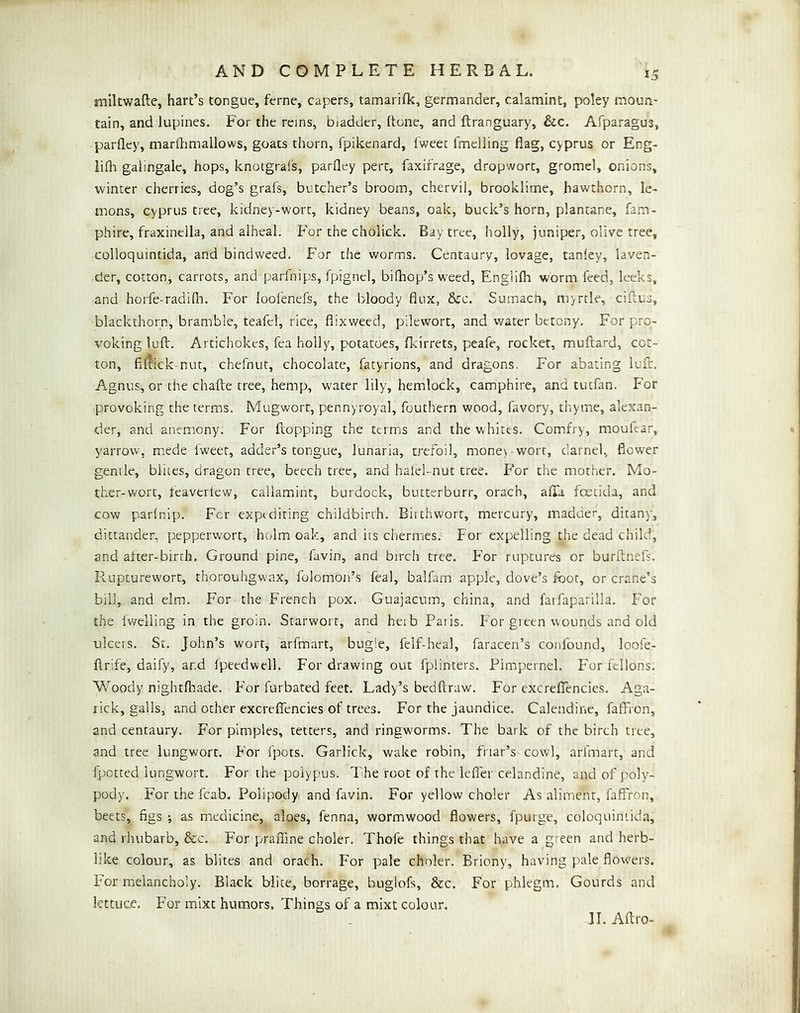 AND COMPLETE HERBAL. 15
miltwaſte, hart's tongue, ferne, capers, tamariſk, germander, calamint, poley moun-
tain, and lupines. For the reins, bladder, ſtone, and ſtranguary, &c. Aſparagus,
parſley, marſhmallows, goats thorn, ſpikenard, ſweet ſmelling flag, cyprus or Eng-
liſh galingale, hops, knotgraſs, parſley pert, ſaxifrage, dropwort, gromel, onions,
winter cherries, dog's graſs, butcher's broom, chervil, brooklime, hawthorn, le-
mons, cyprus tree, kidney-wort, kidney beans, oak, buck's horn, plantane, ſam-
phire, fraxinella, and alheal. For the cholick. Bay tree, holly, juniper, olive tree,
colloquintida, and bindweed. For the worms. Centaury, lovage, tanſey, laven-
der, cotton, carrots, and parſnips, ſpignel, biſhop's weed, Engliſh worm ſeed, leeks,
and horſe-radiſh. For looſeneſs, the bloody flux, &c. Sumach, myrtle, ciſtus,
blackthorn, bramble, teaſel, rice, flixweed, pilewort, and water betony. For pro-
voking luſt. Artichokes, ſea holly, potatoes, ſkirrets, peaſe, rocket, muſtard, cot-
ton, fiſtick-nut, cheſnut, chocolate, ſatyrions, and dragons. For abating luſt.
Agnus, or the chaſte tree, hemp, water lily, hemlock, camphire, and tutſan. For
provoking the terms. Mugwort, pennyroyal, ſouthern wood, ſavory, thyme, alexan-
der, and anemony. For ſtopping the terms and the whites. Comfry, mouſear,
yarrow, mede ſweet, adder's tongue, lunaria, trefoil, money-wort, darnel, flower
gentle, blites, dragon tree, beech tree, and haſel-nut tree. For the mother. Mo-
ther-wort, feaverfew, callamint, burdock, butterburr, orach, aſſa fœtida, and
cow parſnip. For expediting childbirth. Birthwort, mercury, madder, ditany,
dittander, pepperwort, holm oak, and its chermes. For expelling the dead child,
and after-birth. Ground pine, ſavin, and birch tree. For ruptures or burſtneſs.
Rupturewort, thorouhgwax, ſolomon's ſeal, balſam apple, dove's foot, or crane's
bill, and elm. For the French pox. Guajacum, china, and ſarſaparilla. For
the ſwelling in the groin. Starwort, and herb Paris. For green wounds and old
ulcers. St. John's wort, arſmart, bugle, ſelf-heal, ſaracen's confound, looſe-
ſtrife, daiſy, and ſpeedwell. For drawing out ſplinters. Pimpernel. For fellons.
Woody nightſhade. For furbated feet. Lady's bedſtraw. For excreſſencies. Aga-
rick, galls, and other excreſſencies of trees. For the jaundice. Calendine, ſaffron,
and centaury. For pimples, tetters, and ringworms. The bark of the birch tree,
and tree lungwort. For ſpots. Garlick, wake robin, friar's cowl, arſmart, and
ſpotted lungwort. For the polypus. The root of the leſſer celandine, and of poly-
pody. For the ſcab. Polipody and ſavin. For yellow choler As aliment, ſaffron,
beets, figs ; as medicine, aloes, ſenna, wormwood flowers, ſpurge, coloquintida,
and rhubarb, &c. For praſſine choler. Thoſe things that have a green and herb-
like colour, as blites and orach. For pale choler. Briony, having pale flowers.
For melancholy. Black blite, borrage, bugloſs, &c. For phlegm. Gourds and
lettuce. For mixt humors. Things of a mixt colour.
II. Aſtro-